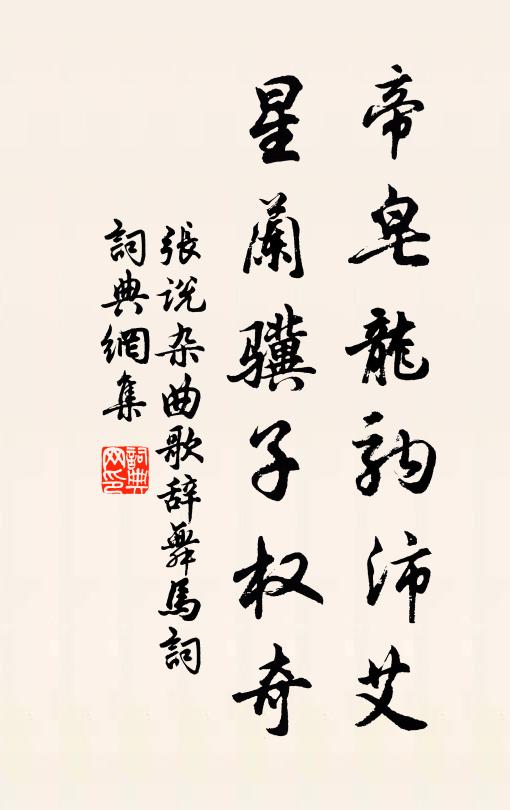 帝皂龍駒沛艾
星蘭骥子权奇
張说杂曲歌辞舞馬詞
詞典網集
詞典网印